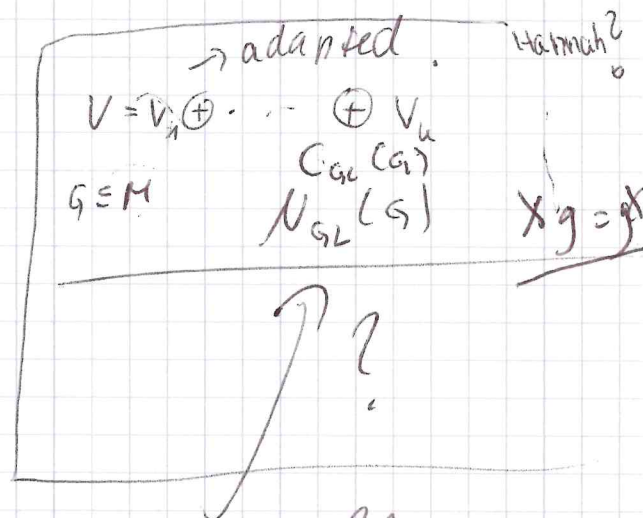 → adapted. Hannah?
V = V₁ ⊕ · · · ⊕ Vₖ
C_GL(G)
G ≤ M N_GL(G) X g = g X
?